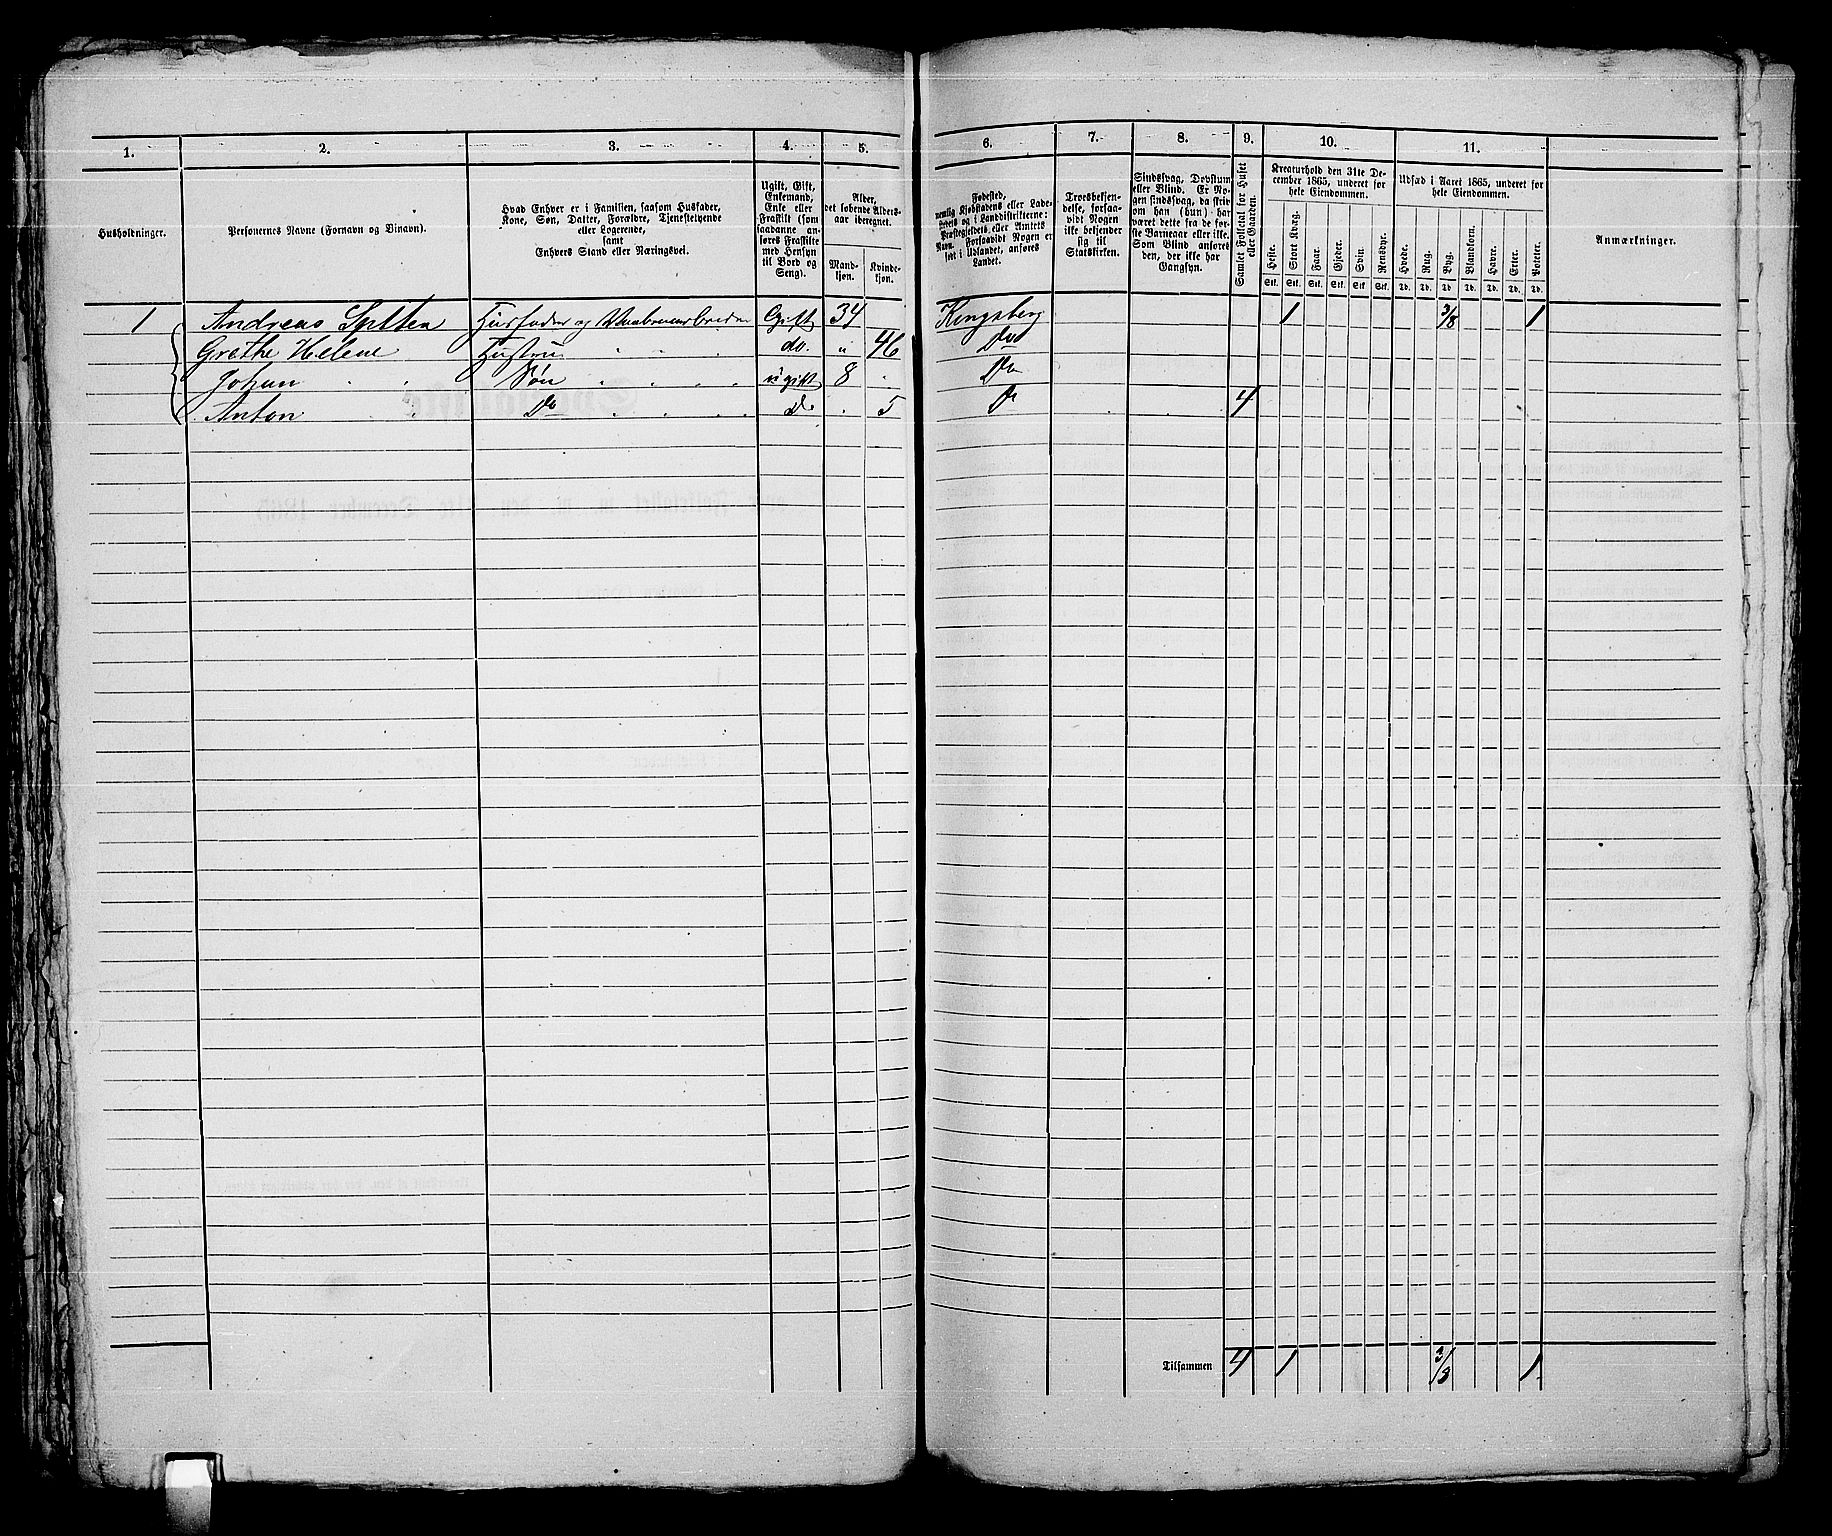 1. 2. 3. 4. 5. 6. 7. 8. 9. 10. 11.
Husholdninger.
Personernes Navne (Fornavn og Binavn).
Hvad Enhver er i Familien, saasom Husfader,
Kone, Søn, Datter, Forældre, Tjenestetyende
eller Logerende,
samt
Enhvers Stand eller Næringsvei.
Ugift, Gift,
Enkemand,
Enke eller
Fraskilt (som
saadanne an-
føres Fraskilte
med Hensyn
til Bord og
Seng).
Alder,
det løbende Alders-
aar iberegnet.
Mand-
kjøn.
Kvinde-
kjøn.
Fødested,
nemlig Kjøbstadens eller Lade-
stedets og i Landdistrikterne:
Præstegjeldets eller Amtets
Navn. Forsaavidt Nogen er
født i Udlandet, anføres
Landet.
Troesbekjen-
delse, forsaa-
vidt Nogen
ikke bekjender
sig til
Statskirken.
Sindssvag, Døvstum
eller Blind. Er No-
gen sindssvag, da skriv
om han (hun) har
været dette fra de før-
ste Barneaar eller ikke.
Som Blind anføres
den, der ikke har
Gangsyn.
Samlet Folketal for Huset
eller Gaarden.
Kreaturhold den 31te De-
cember 1865, underet for
hele Eiendommen.
Heste. Stort Kvæg. Faar. Gjeder. Svin. Rensdyr.
Stk. Stk. Stk. Stk. Stk. Stk.
Udsæd i Aaret 1865, underet for
hele Eiendommen.
Hvede. Rug. Byg. Blandkorn. Havre. Erter. Poteter.
Td. Td. Td Td. Td. Td. Td.
Anmærkninger.
1 Andreas Husfader og Gift 34 Kongsberg 1 3/8 1
Grethe Helene Hustru do. " 46 Do
Johan Søn ugift 8 Do
Anton Do Do 5 Do 4
Tilsammen 4 1 1